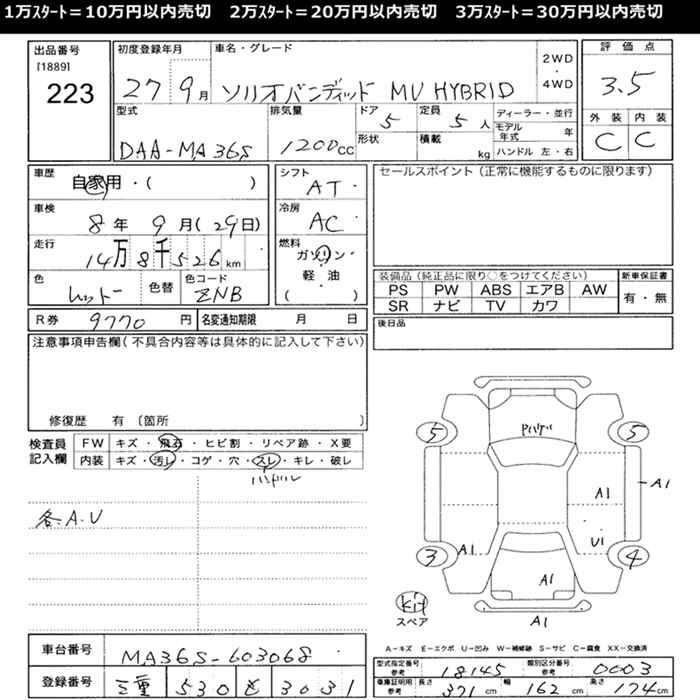 1万ｽﾀｰﾄ＝10万円以内売切　2万ｽﾀｰﾄ＝20万円以内売切　3万ｽﾀｰﾄ＝30万円以内売切
出品番号 [1889] 223
初度登録年月 27 9月
車名・グレード ソリオバンディッド MV HYBRID
2WD・4WD
評価点 3.5
外装 C 内装 C
型式 DAA-MA36S
排気量 1200cc
ドア 5
形状
定員 5人
積載 kg
ディーラー・並行
モデル年式 年
ハンドル 左・右
車歴 自家用・( )
車検 8年 9月(29日)
走行 14万8千526km
色 レッド 色替
色コード ZNB
シフト AT
冷房 AC
燃料 ガソリン・軽・油 ( )
セールスポイント（正常に機能するものに限ります）
装備品（純正品に限り○をつけてください）
PS PW ABS エアB AW
SR ナビ TV カワ
新車保証書 有・無
R券 9770円
名変通知期限 月 日
後日品
注意事項申告欄(不具合内容等は具体的に記入して下さい)
修復歴 有〔箇所 〕
検査員記入欄
FW キズ・飛石・ヒビ割・リペア跡・X要
内装 キズ・汚レ・コゲ・穴・スレ・キレ・破レ
ハンドル
各A.U
5 5
Pハゲ
A1 A1
A1 U1
3 4
A1
A1
kit
スペア
A−キズ E−エクボ U−凹み W−補修跡 S−サビ C−腐食 XX−交換済
車台番号 MA36S-603068
登録番号 三重 530 と 3031
型式指定番号 参考 18145
類別区分番号 参考 0003
車庫証明用 参考 長さ 371cm 幅 162cm 高さ 174cm